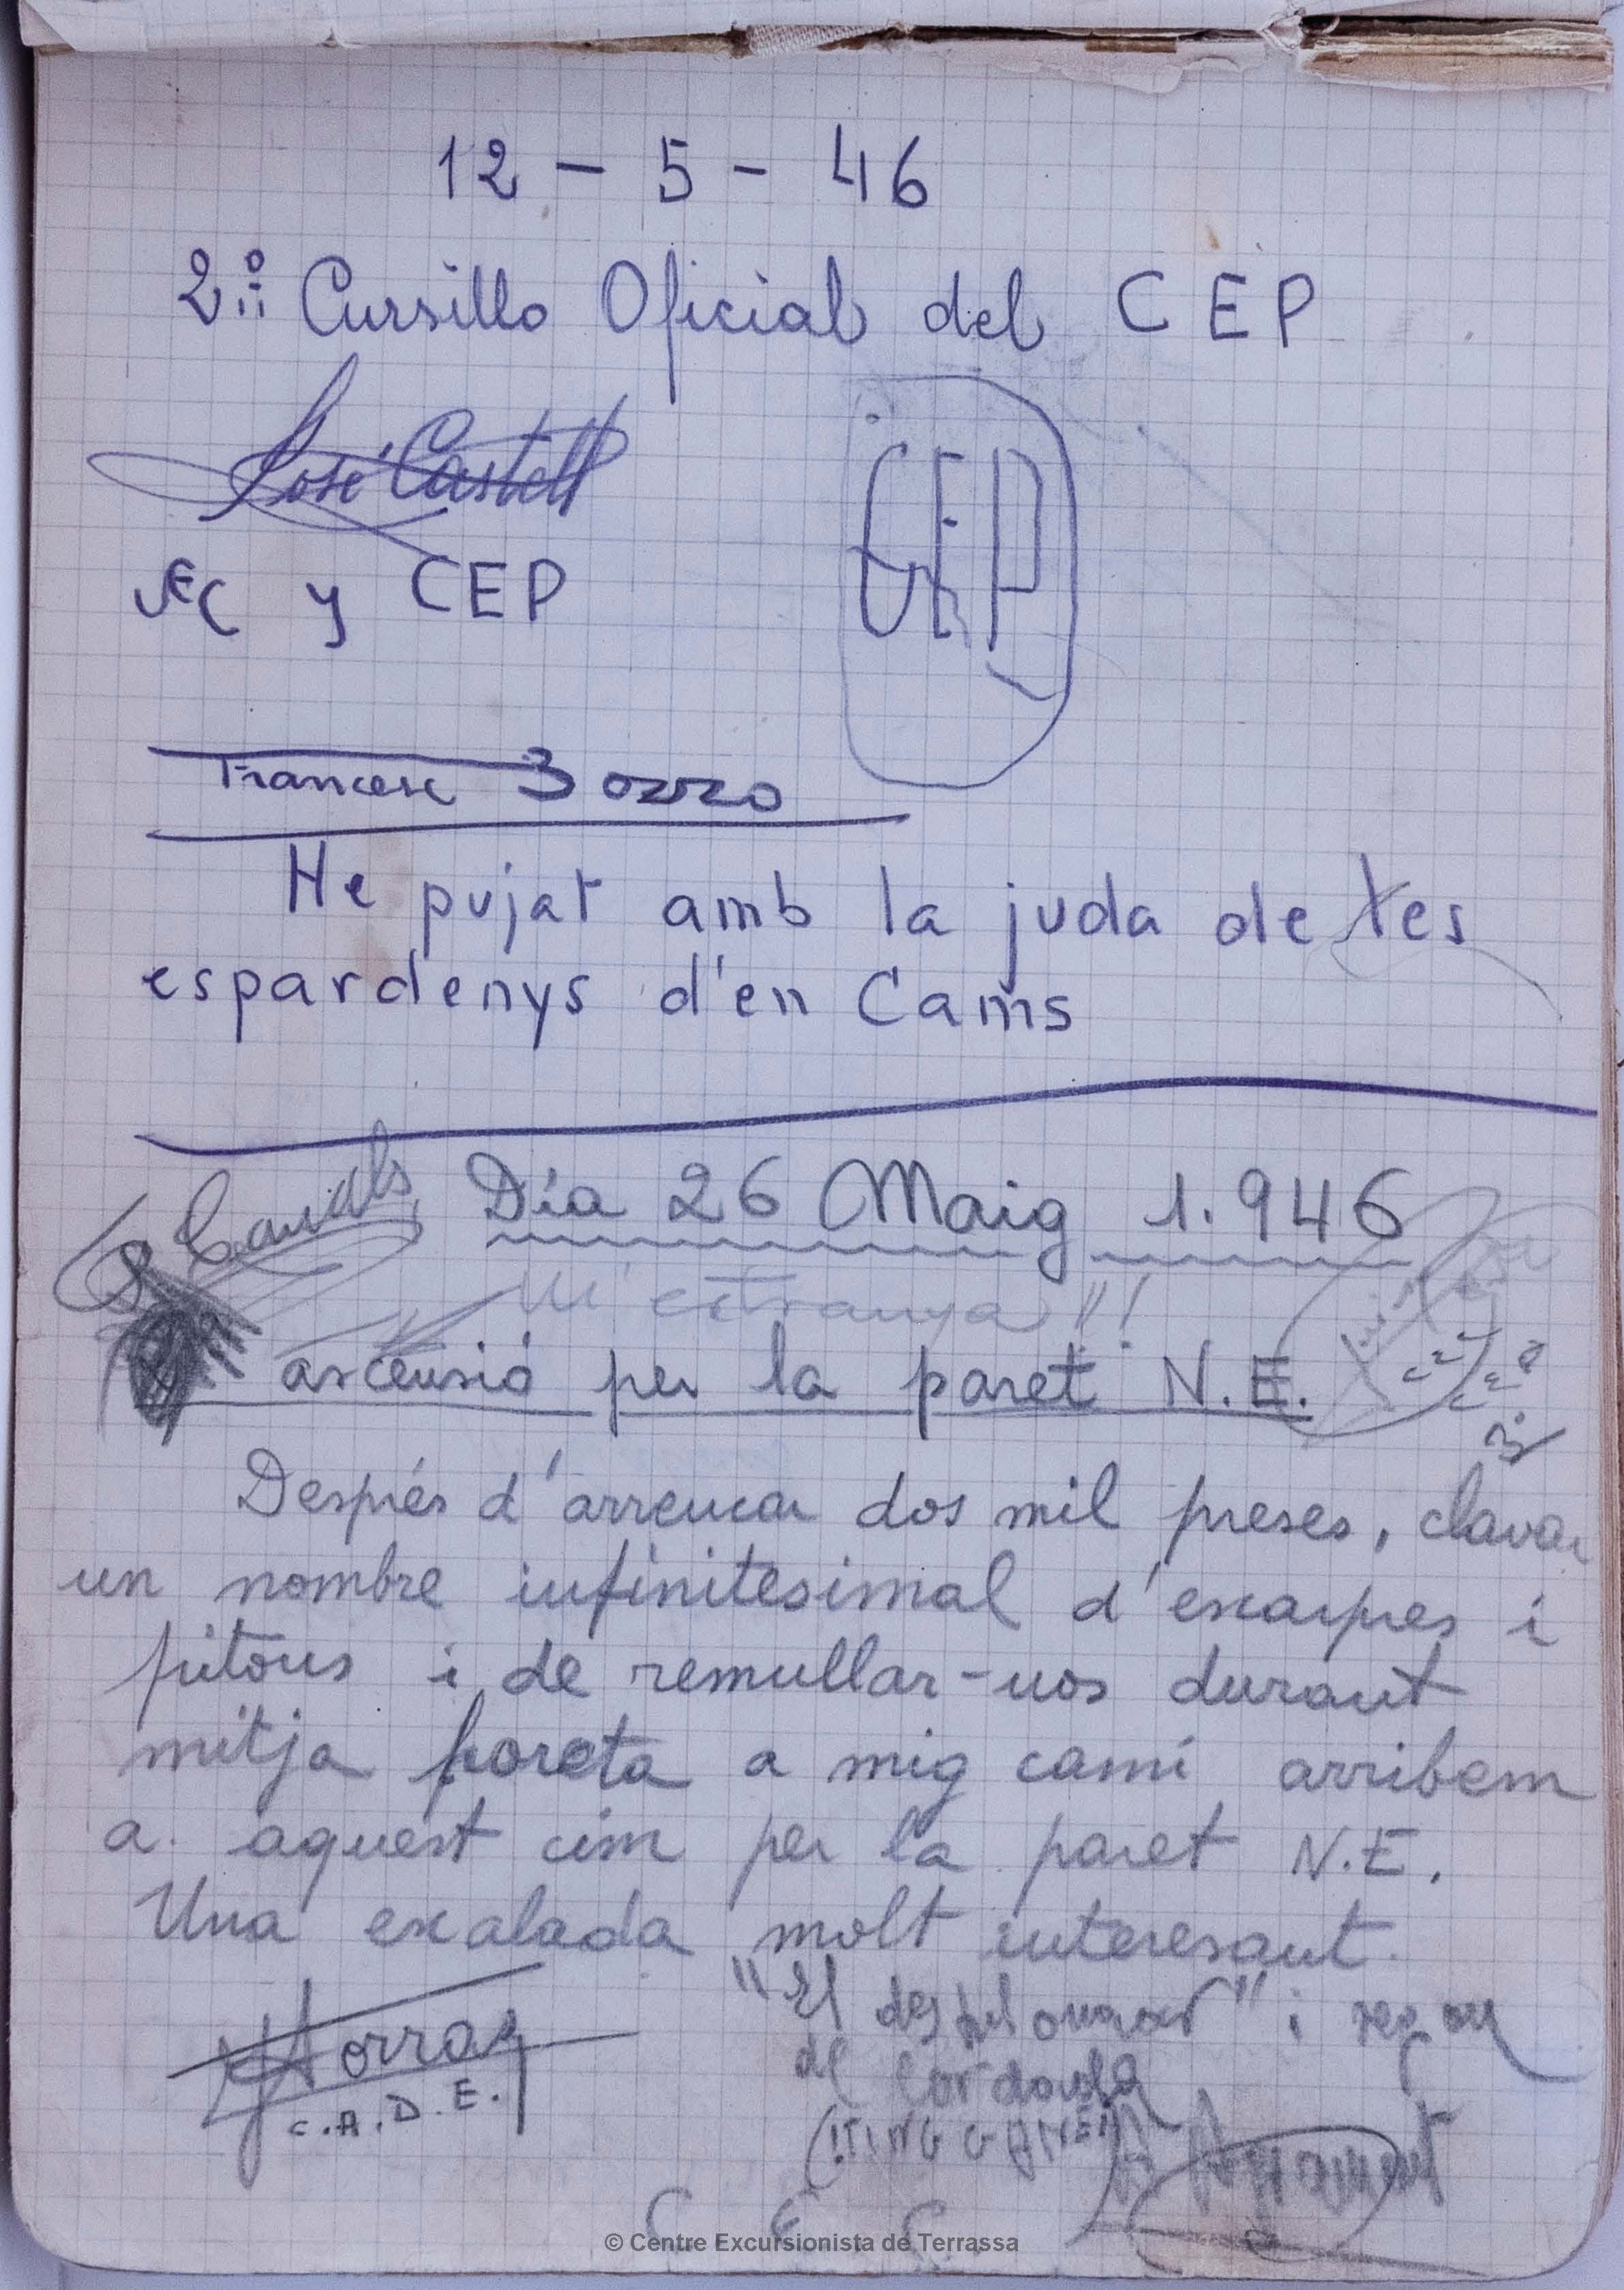 12 - 5 - 46
2º Cursillo Oficial del CEP
José Castell
CEP
y CEP
Francesc
He pujat amb la juda de les
espardenys d'en Cams
Canals
Día 26 Maig 1.946
M'estranya!!
ascensió per la paret N.E.
Després d'arrencar dos mil preses, clavar
un nombre infinitesimal d'escarpes i
pitons i de remullar-nos durant
mitja horeta a mig camí arribem
a aquest cim per la paret N.E.
Una escalada molt interesant.
"El
de
C.A.D.E.
C E C
© Centre Excursionista de Terrassa